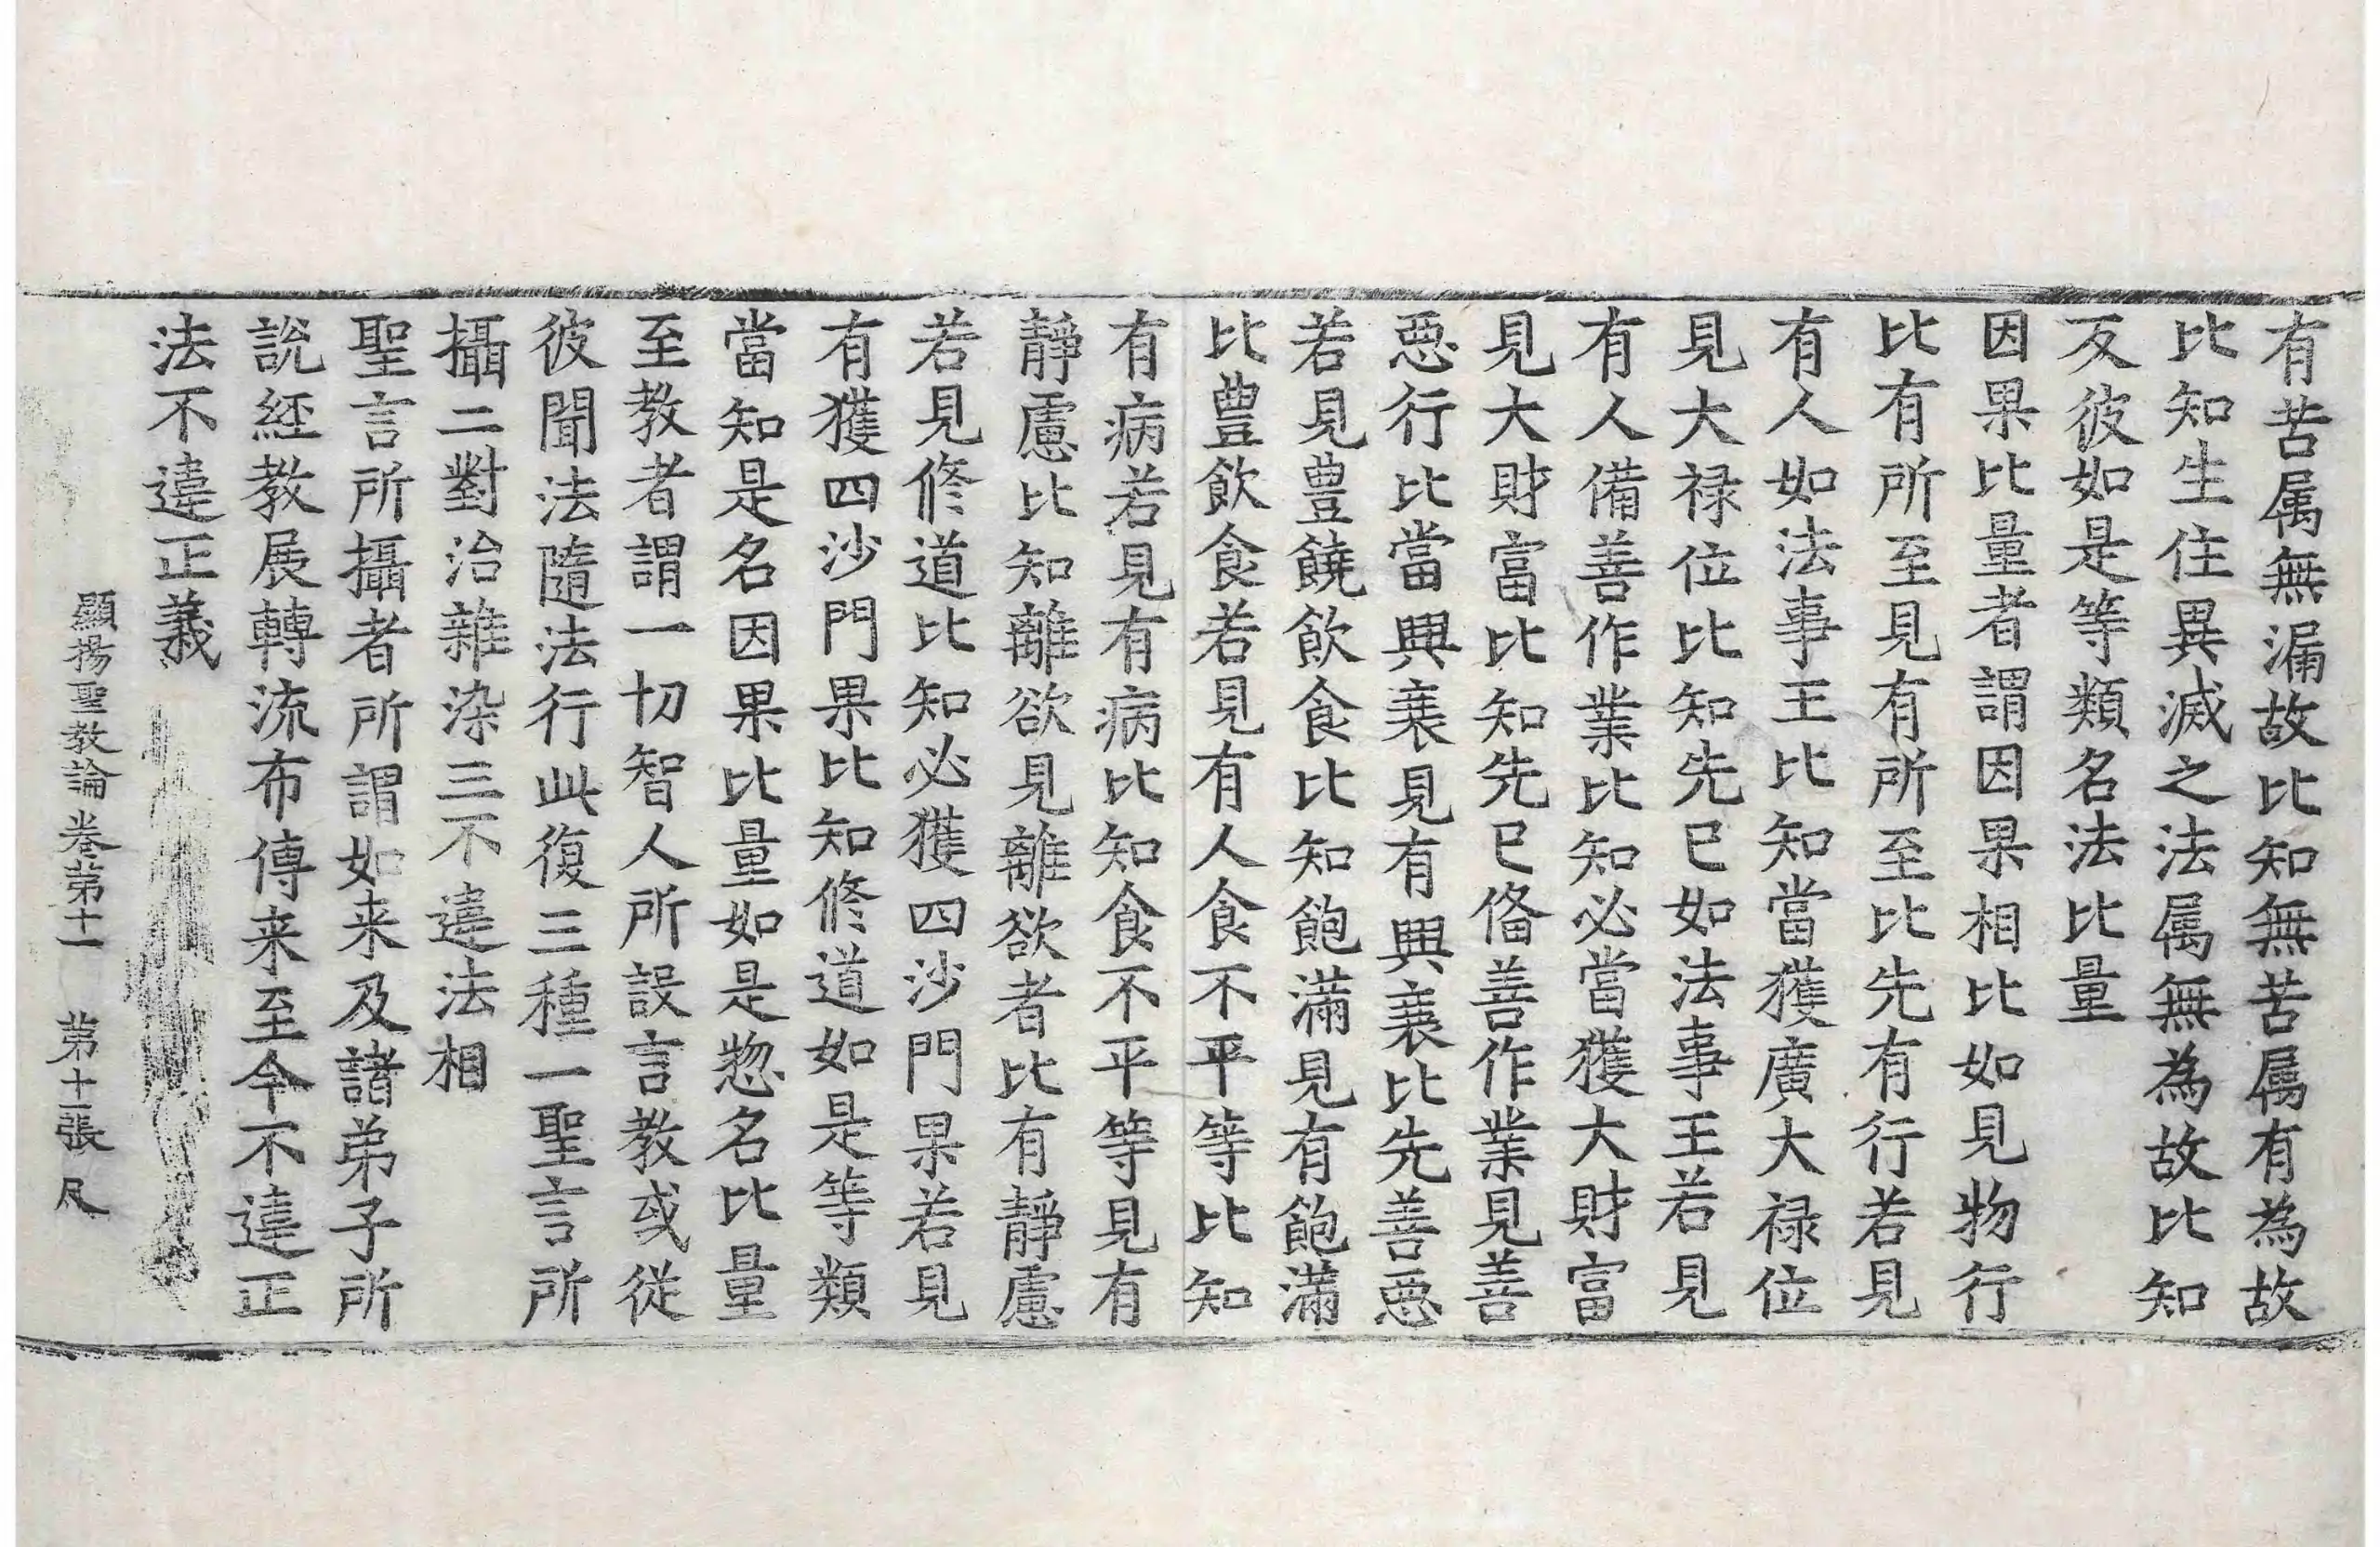 有苦属無漏故比知無苦属有為故
比知生住異滅之法属無為故比知
反彼如是等類名法比量
因果比量者謂因果相比如見物行
比有所至見有所至比先有行若見
有人如法事王比知當獲廣大禄位
見大禄位比知先已如法事王若見
有人備善作業比知必當獲大財富
見大財富比知先已俻善作業見善
惡行比當興衰見有興衰比先善惡
若見豊饒飲食比知飽滿見有飽滿
比豊飲食若見有人食不平等比知
有病若見有病比知食不平等見有
靜慮比知離欲見離欲者比有靜慮
若見修道比知必獲四沙門果若見
有獲四沙門果比知修道如是等類
當知是名因果比量如是惣名比量
至教者謂一切智人所設言教或從
彼聞法隨法行此復三種一聖言所
攝二對治雜染三不違法相
聖言所攝者所謂如来及諸弟子所
說經教展轉流布傳来至今不違正
法不違正義
顯揚聖教論卷第十一 第十二張 尺